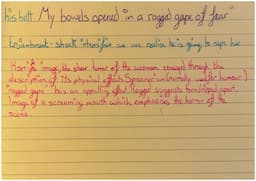 his belt. My bowels opened in a ragged gape of fear"
enjambment - shock intensifies as we realise he is going to rape her
Horrific image, the shear terror of the woman conveyed through the
description of its physical effects Spoonerism (normally used for humour)
"ragged gape" has an appalling effect Ragged suggests torn/ripped apart.
Image of a screaming mouth which emphasises the horror of the
scene.